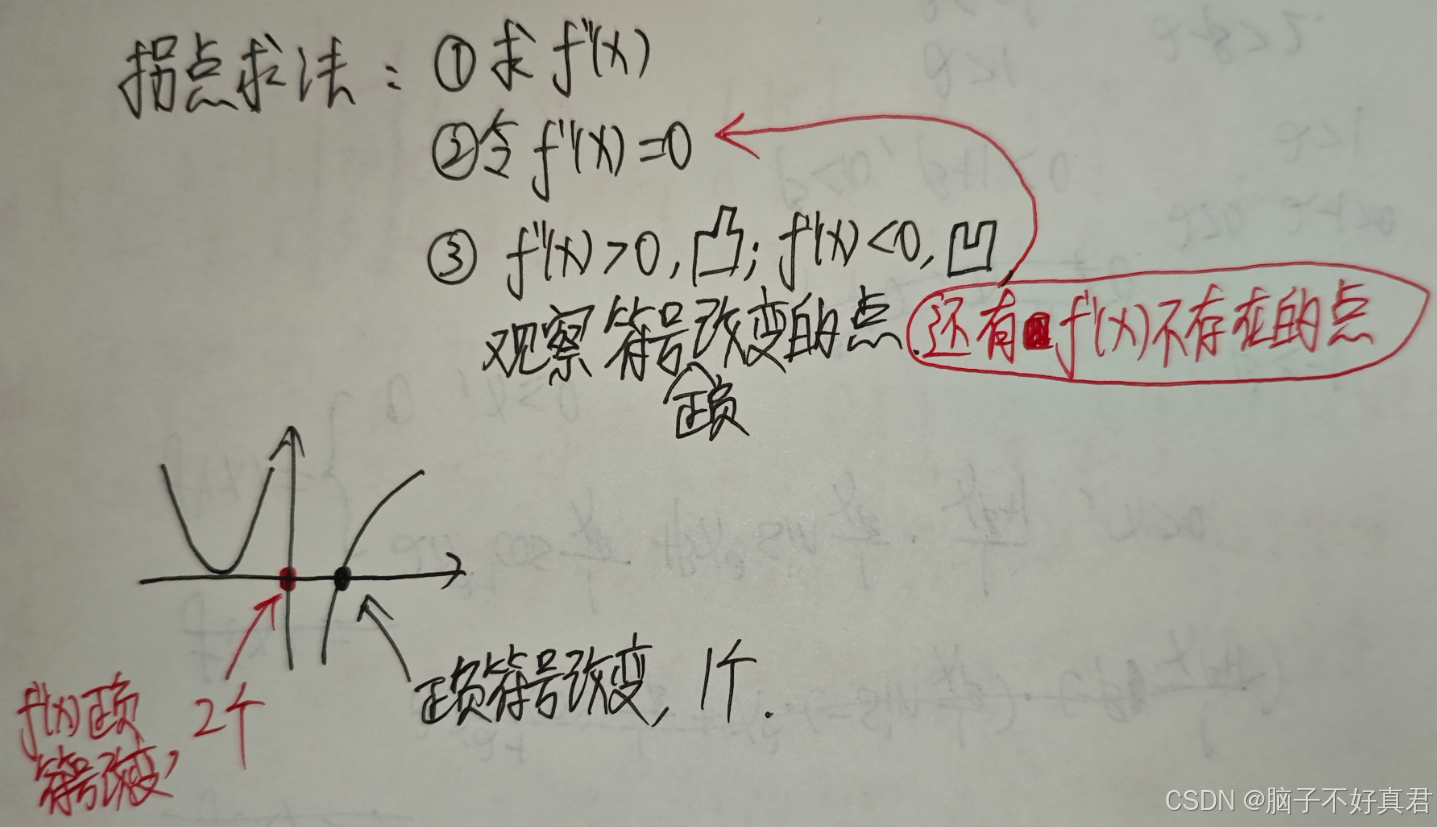 拐点求法：①求f''(x)
②令f''(x)=0
③ f''(x)>0,凸；f''(x)<0,凹
观察符号改变的点.还有f''(x)不存在的点
正负
f''(x)正负
符号改变，2个
正负符号改变，1个.
CSDN @脑子不好真君